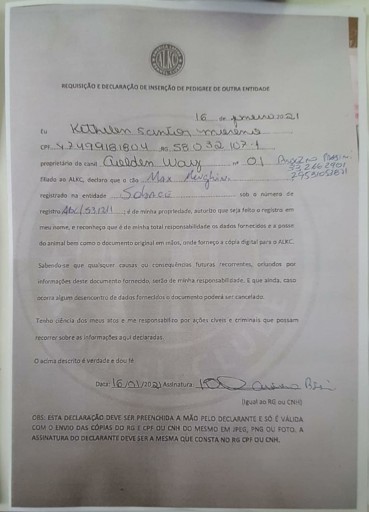 ALKC
REQUISIÇÃO E DECLARAÇÃO DE INSERÇÃO DE PEDIGREE DE OUTRA ENTIDADE
16 de janeiro 2021
Eu Kethilen Santos
CPF RG 58.032.107-1
proprietário do canil Golden Way nº 01
filiado ao ALKC, declaro que o cão Max
registrado na entidade Sobraci sob o número de
registro, é de minha propriedade, autorizo que seja feito o registro em
meu nome, e reconheço que é do minha total responsabilidade os dados fornecidos e a posse
do animal bem como o documento original em mãos, onde forneço a cópia digital para o ALKC.
Sabendo-se que quaisquer causas ou consequências futuras recorrentes, oriundos por
informações deste documento fornecido, serão de minha responsabilidade. E que ainda, caso
ocorra algum desencontro de dados fornecidos o documento poderá ser cancelado.
Tenho ciência dos meus atos e me responsabilizo por ações cíveis e criminais que possam
recorrer sobre as informações aqui declaradas.
O acima descrito é verdade e dou fé.
Data: 16/01/2021 Assinatura:
(igual ao RG ou CNH)
OBS: ESTA DECLARAÇÃO DEVE SER PREENCHIDA A MÃO PELO DECLARANTE E SÓ É VÁLIDA
COM O ENVIO DAS CÓPIAS DO RG E CPF OU CNH DO MESMO EM JPEG, PNG OU FOTO. A
ASSINATURA DO DECLARANTE DEVE SER A MESMA QUE CONSTA NO RG CPF OU CNH.